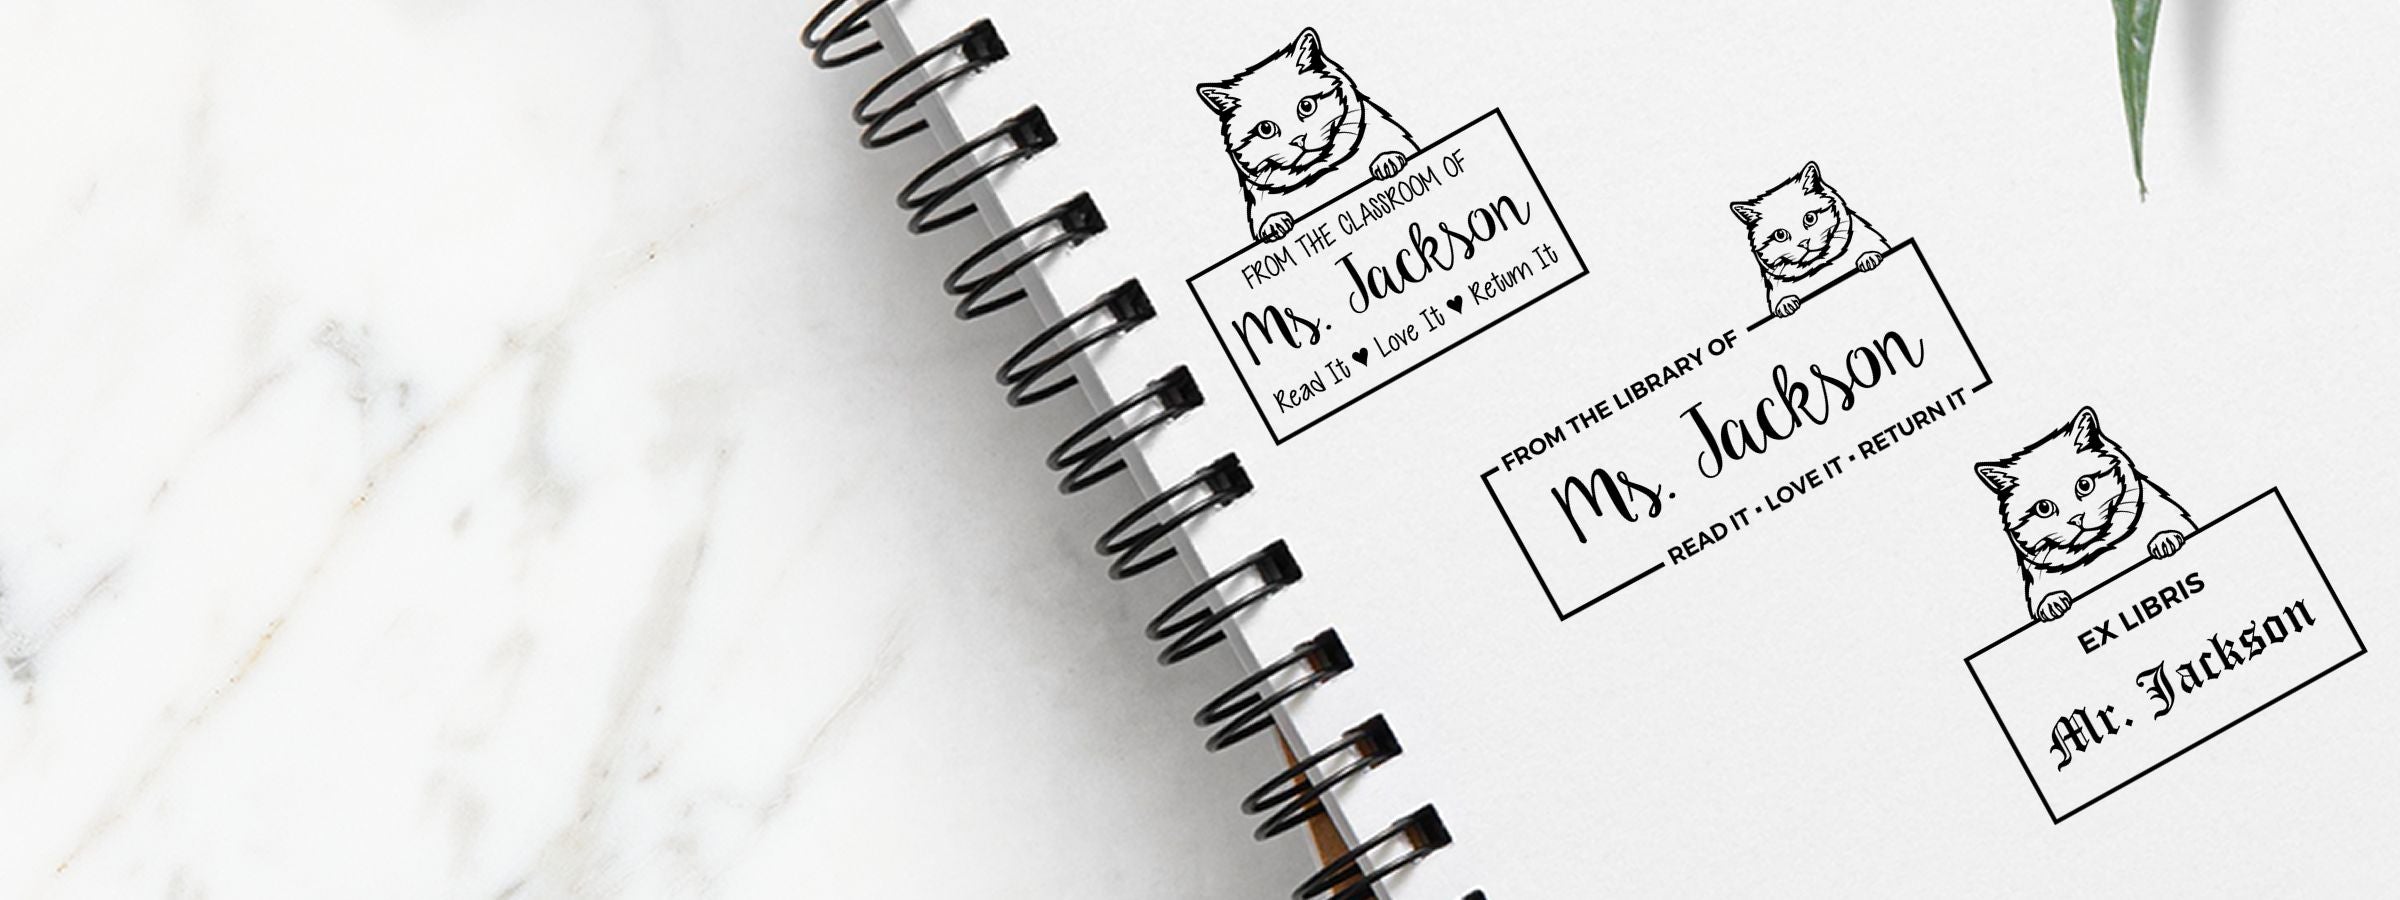 FROM THE CLASSROOM OF
Ms. Jackson
Read It ♥ Love It ♥ Return It
FROM THE LIBRARY OF
Ms. Jackson
READ IT • LOVE IT • RETURN IT
EX LIBRIS
Mr. Jackson